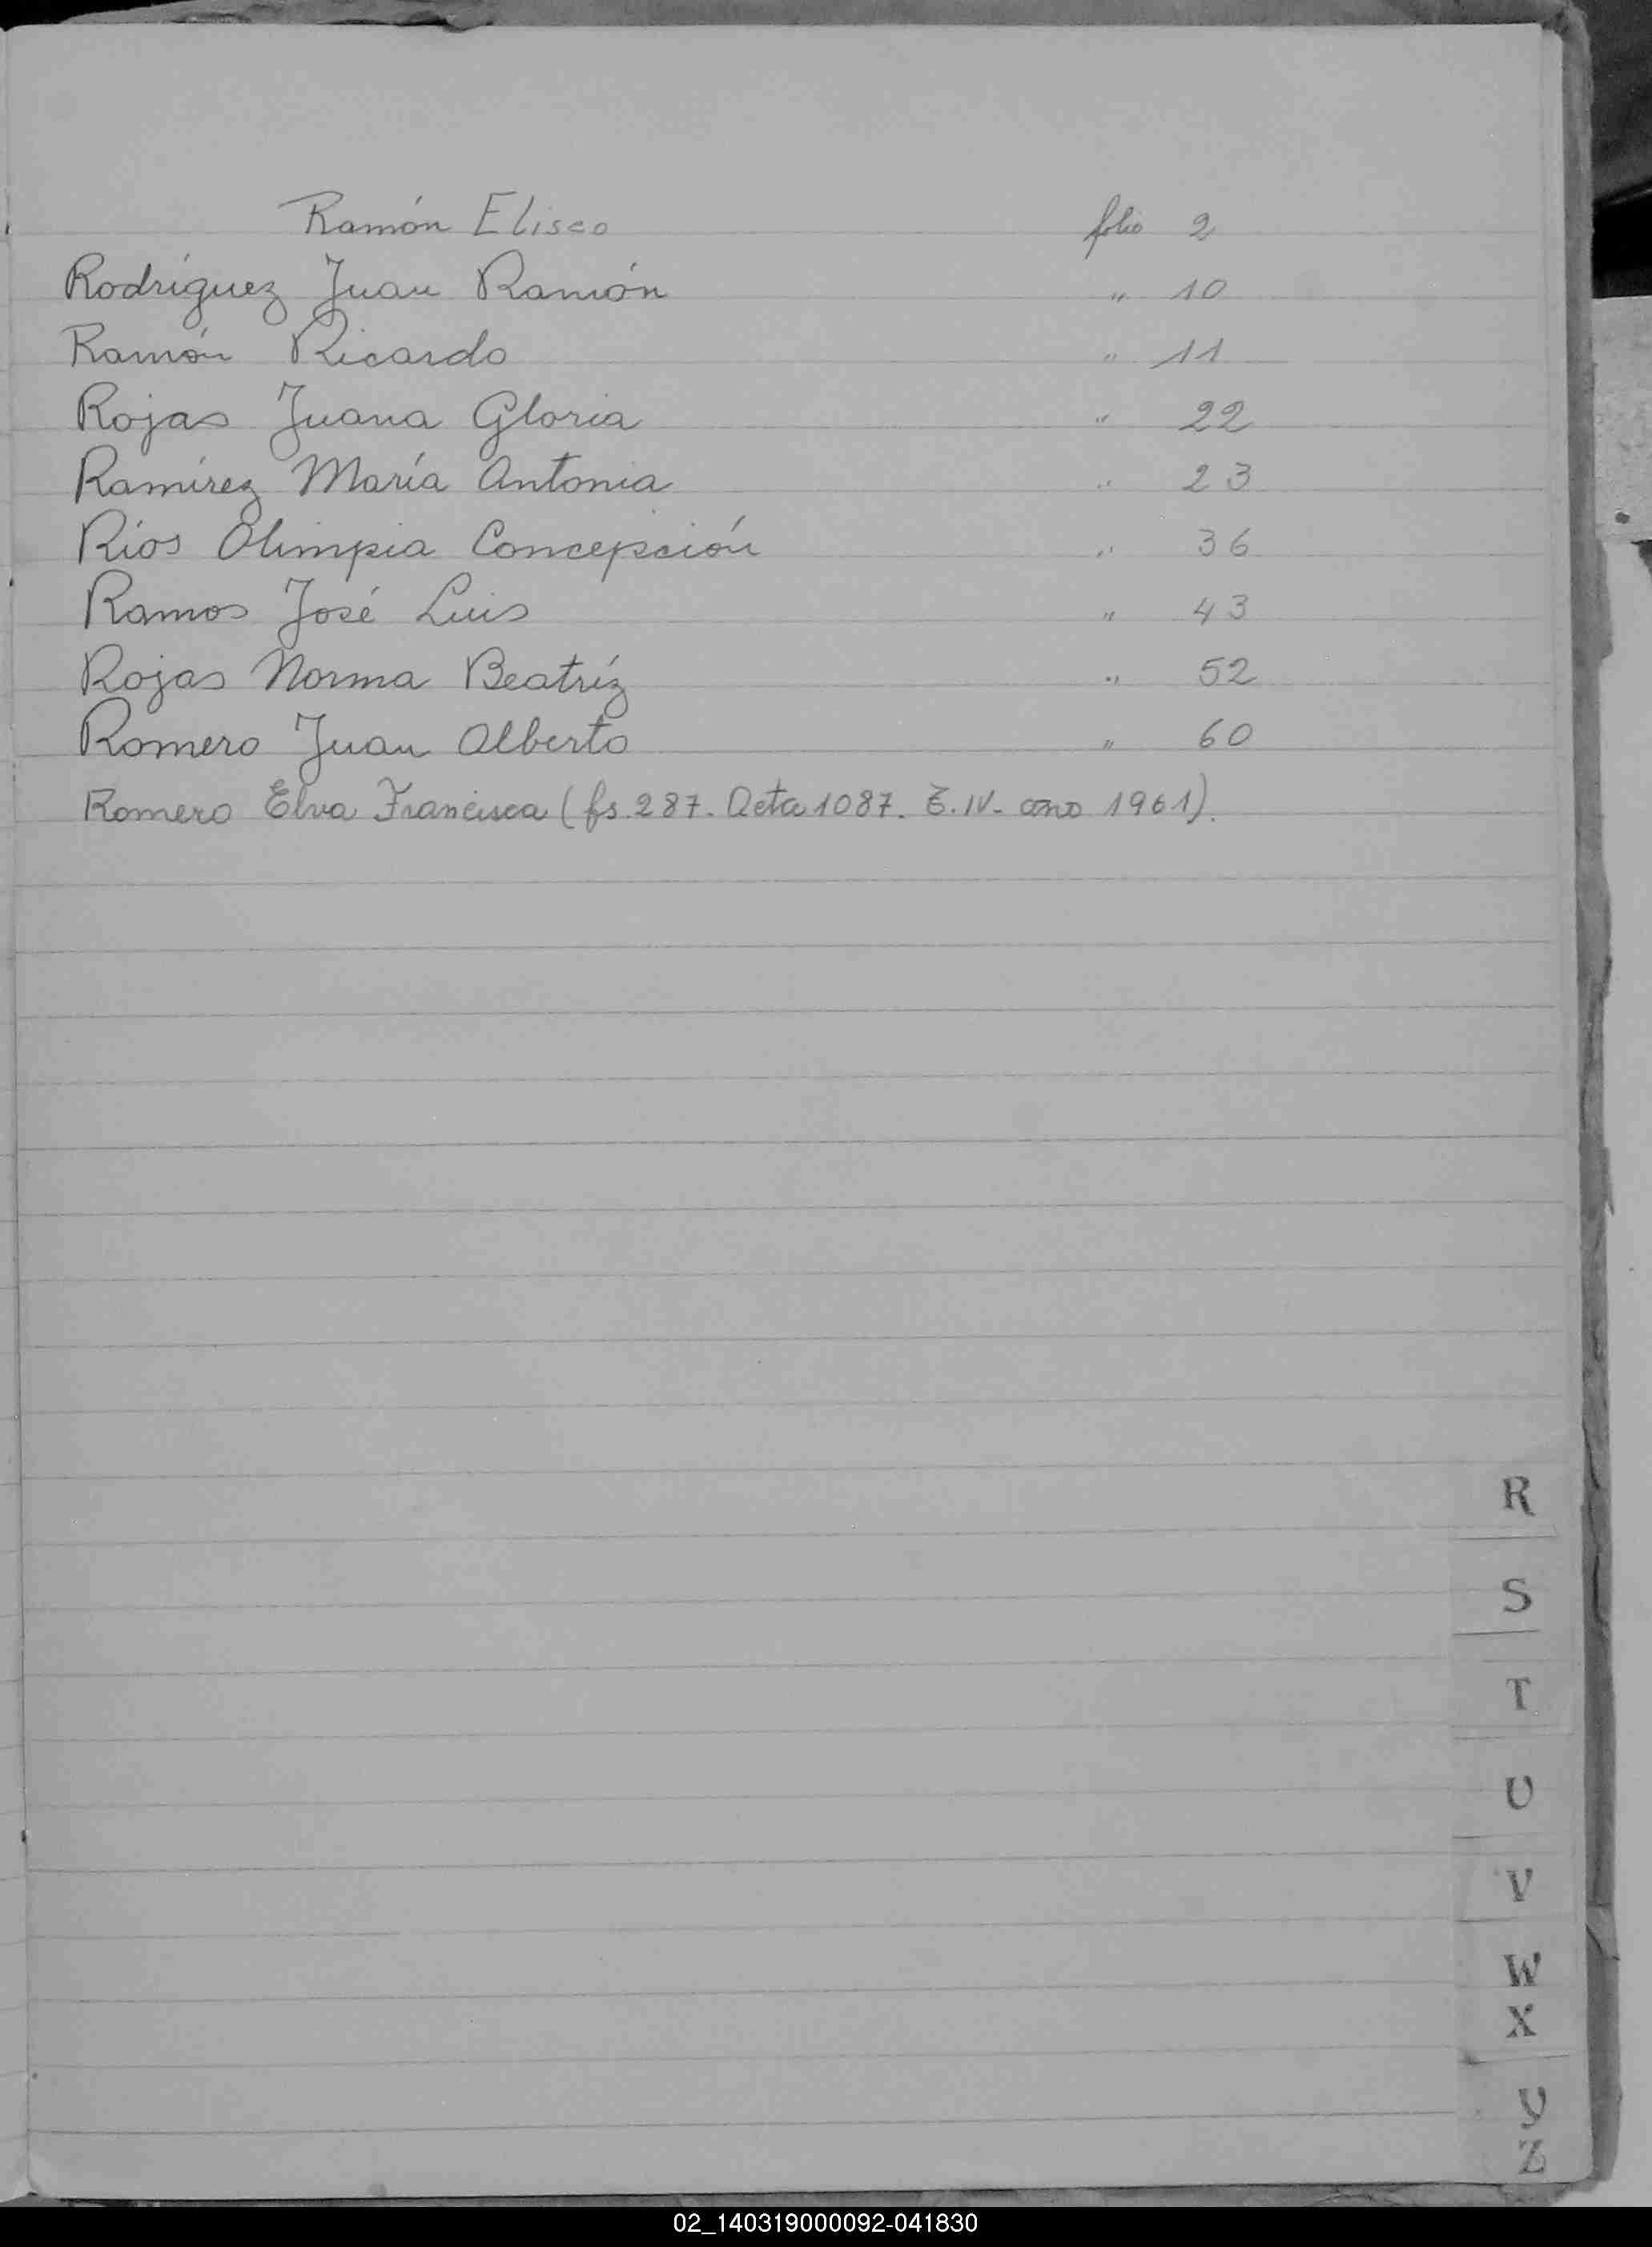 Ramón Eliseo folio 2
Rodríguez Juan Ramón " 10
Ramón Ricardo " 11
Rojas Juana Gloria " 22
Ramírez María Antonia " 23
Ríos Olimpia Concepción " 36
Ramos José Luis " 43
Rojas Norma Beatríz " 52
Romero Juan Alberto " 60
Romero Elva Francisca (fs. 287. Acta 1087. T. IV- ano 1961).
R
S
T
U
V
W
X
Y
Z
02_140319000092-041830